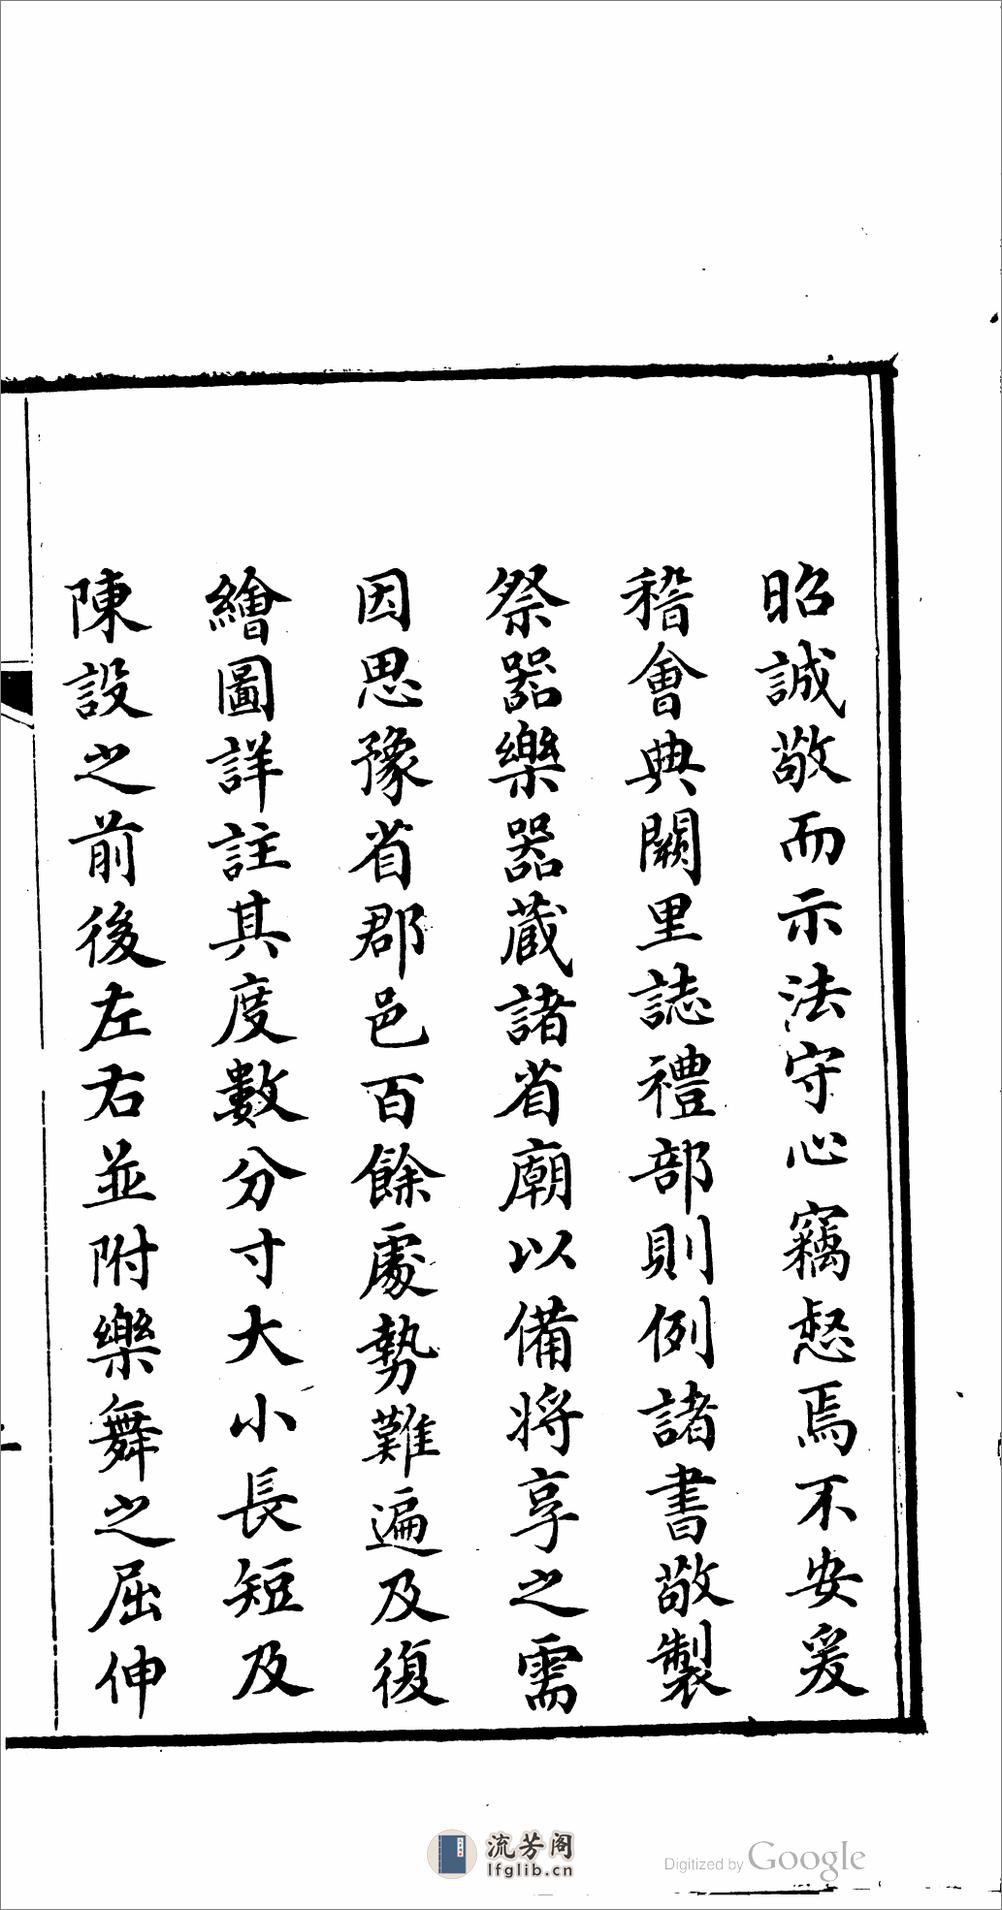 昭誠敬而示法守心竊愸焉不安爰
稽會典闕里誌禮部則例諸書敬製
祭器樂器蔵諸省廟以備將享之需
因思豫省郡邑百餘處勢難遍及復
繪圖詳註其度數分寸大小長短及
陳設之前後左右並附樂舞之屈伸
流芳阁
lfglib.cn
Digitized by Google